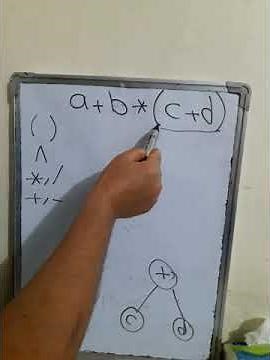 a+b*(c+d)
( )
^
*, /
+, -
+
c d